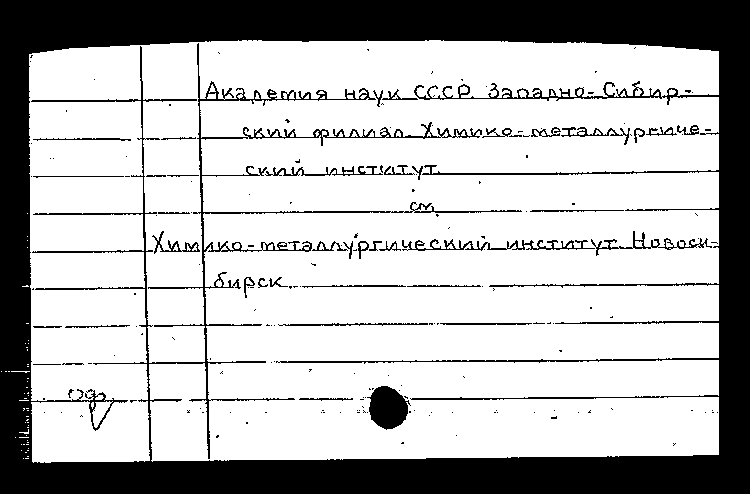 Академия наук СССР. Западно-Сибир-
ский филиал. Химико-металлургиче-
ский институт.
см.
Химико-металлургический институт. Новоси-
бирск.